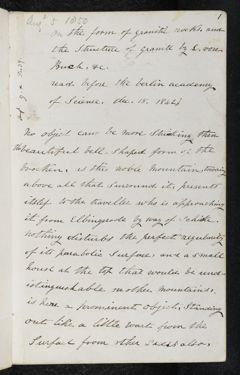 1
Aug 5 1850
on the form of granite rocks and
the Structure of granite by L. von
Buch. &c.
read before the berlin academy
of Science. Dec. 15. 1842
No object can be more Striking than
the beautiful bell shaped form of the
brocken, as the noble Mountain, towering
above all that Surround it, presents
itself to the traveller who is approaching
it from Elbingerode by way of
nothing disturbs the perfect regularity
of its parabolic Surface, and a small
house at the top that would be und-
istinguishable on other mountains,
is here a prominent object, Standing
out like a little wart from the
Surface from other Sides also,